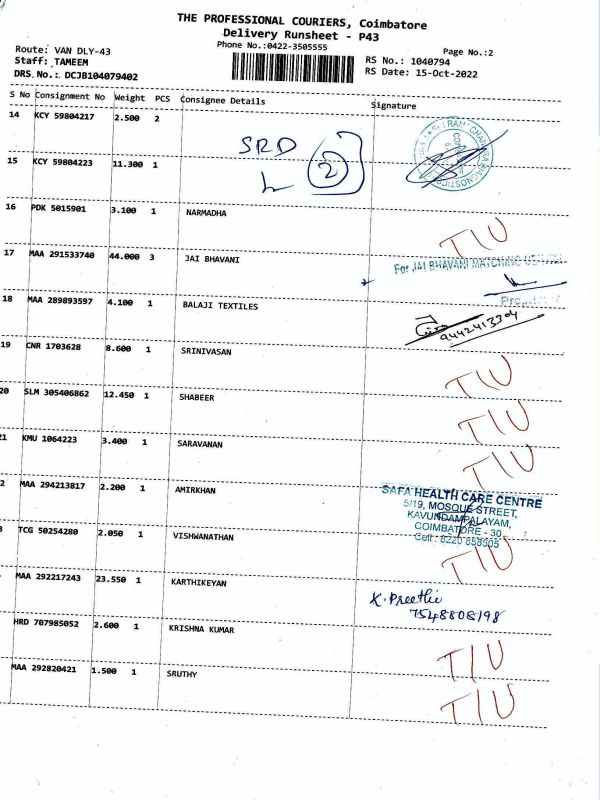 THE PROFESSIONAL COURIERS, Coimbatore
Delivery Runsheet - P43
Phone No.:0422-3505555
Page No.:2
Route: VAN DLY-43
Staff: TAMEEM
DRS.No.: DCJB104079402
RS No.: 1040794
RS Date: 15-Oct-2022
S No Consignment No Weight PCS Consignee Details Signature
14 KCY 59804217 2.500 2
SRD
2
15 KCY 59804223 11.300 1
16 PDK 5015901 3.100 1 NARMADHA T/U
17 MAA 291533740 44.000 3 JAI BHAVANI
For JAI BHAVANI MATCHING
18 MAA 289893597 4.100 1 BALAJI TEXTILES
9442413304
19 CNR 1703628 8.600 1 SRINIVASAN T/U
20 SLM 305406862 12.450 1 SHABEER T/U
21 KMU 1064223 3.400 1 SARAVANAN T/U
2 MAA 294213817 2.200 1 AMIRKHAN
SAFA HEALTH CARE CENTRE
5/19, MOSQUE STREET,
KAVUNDAMPALAYAM,
COIMBATORE - 30
Cell : 8220 658505
TCG 50254280 2.050 1 VISHWANATHAN T/U
MAA 292217243 23.550 1 KARTHIKEYAN
K. Preethi
7548808198
HRD 707985052 2.600 1 KRISHNA KUMAR T/U
MAA 292820421 1.500 1 SRUTHY T/U